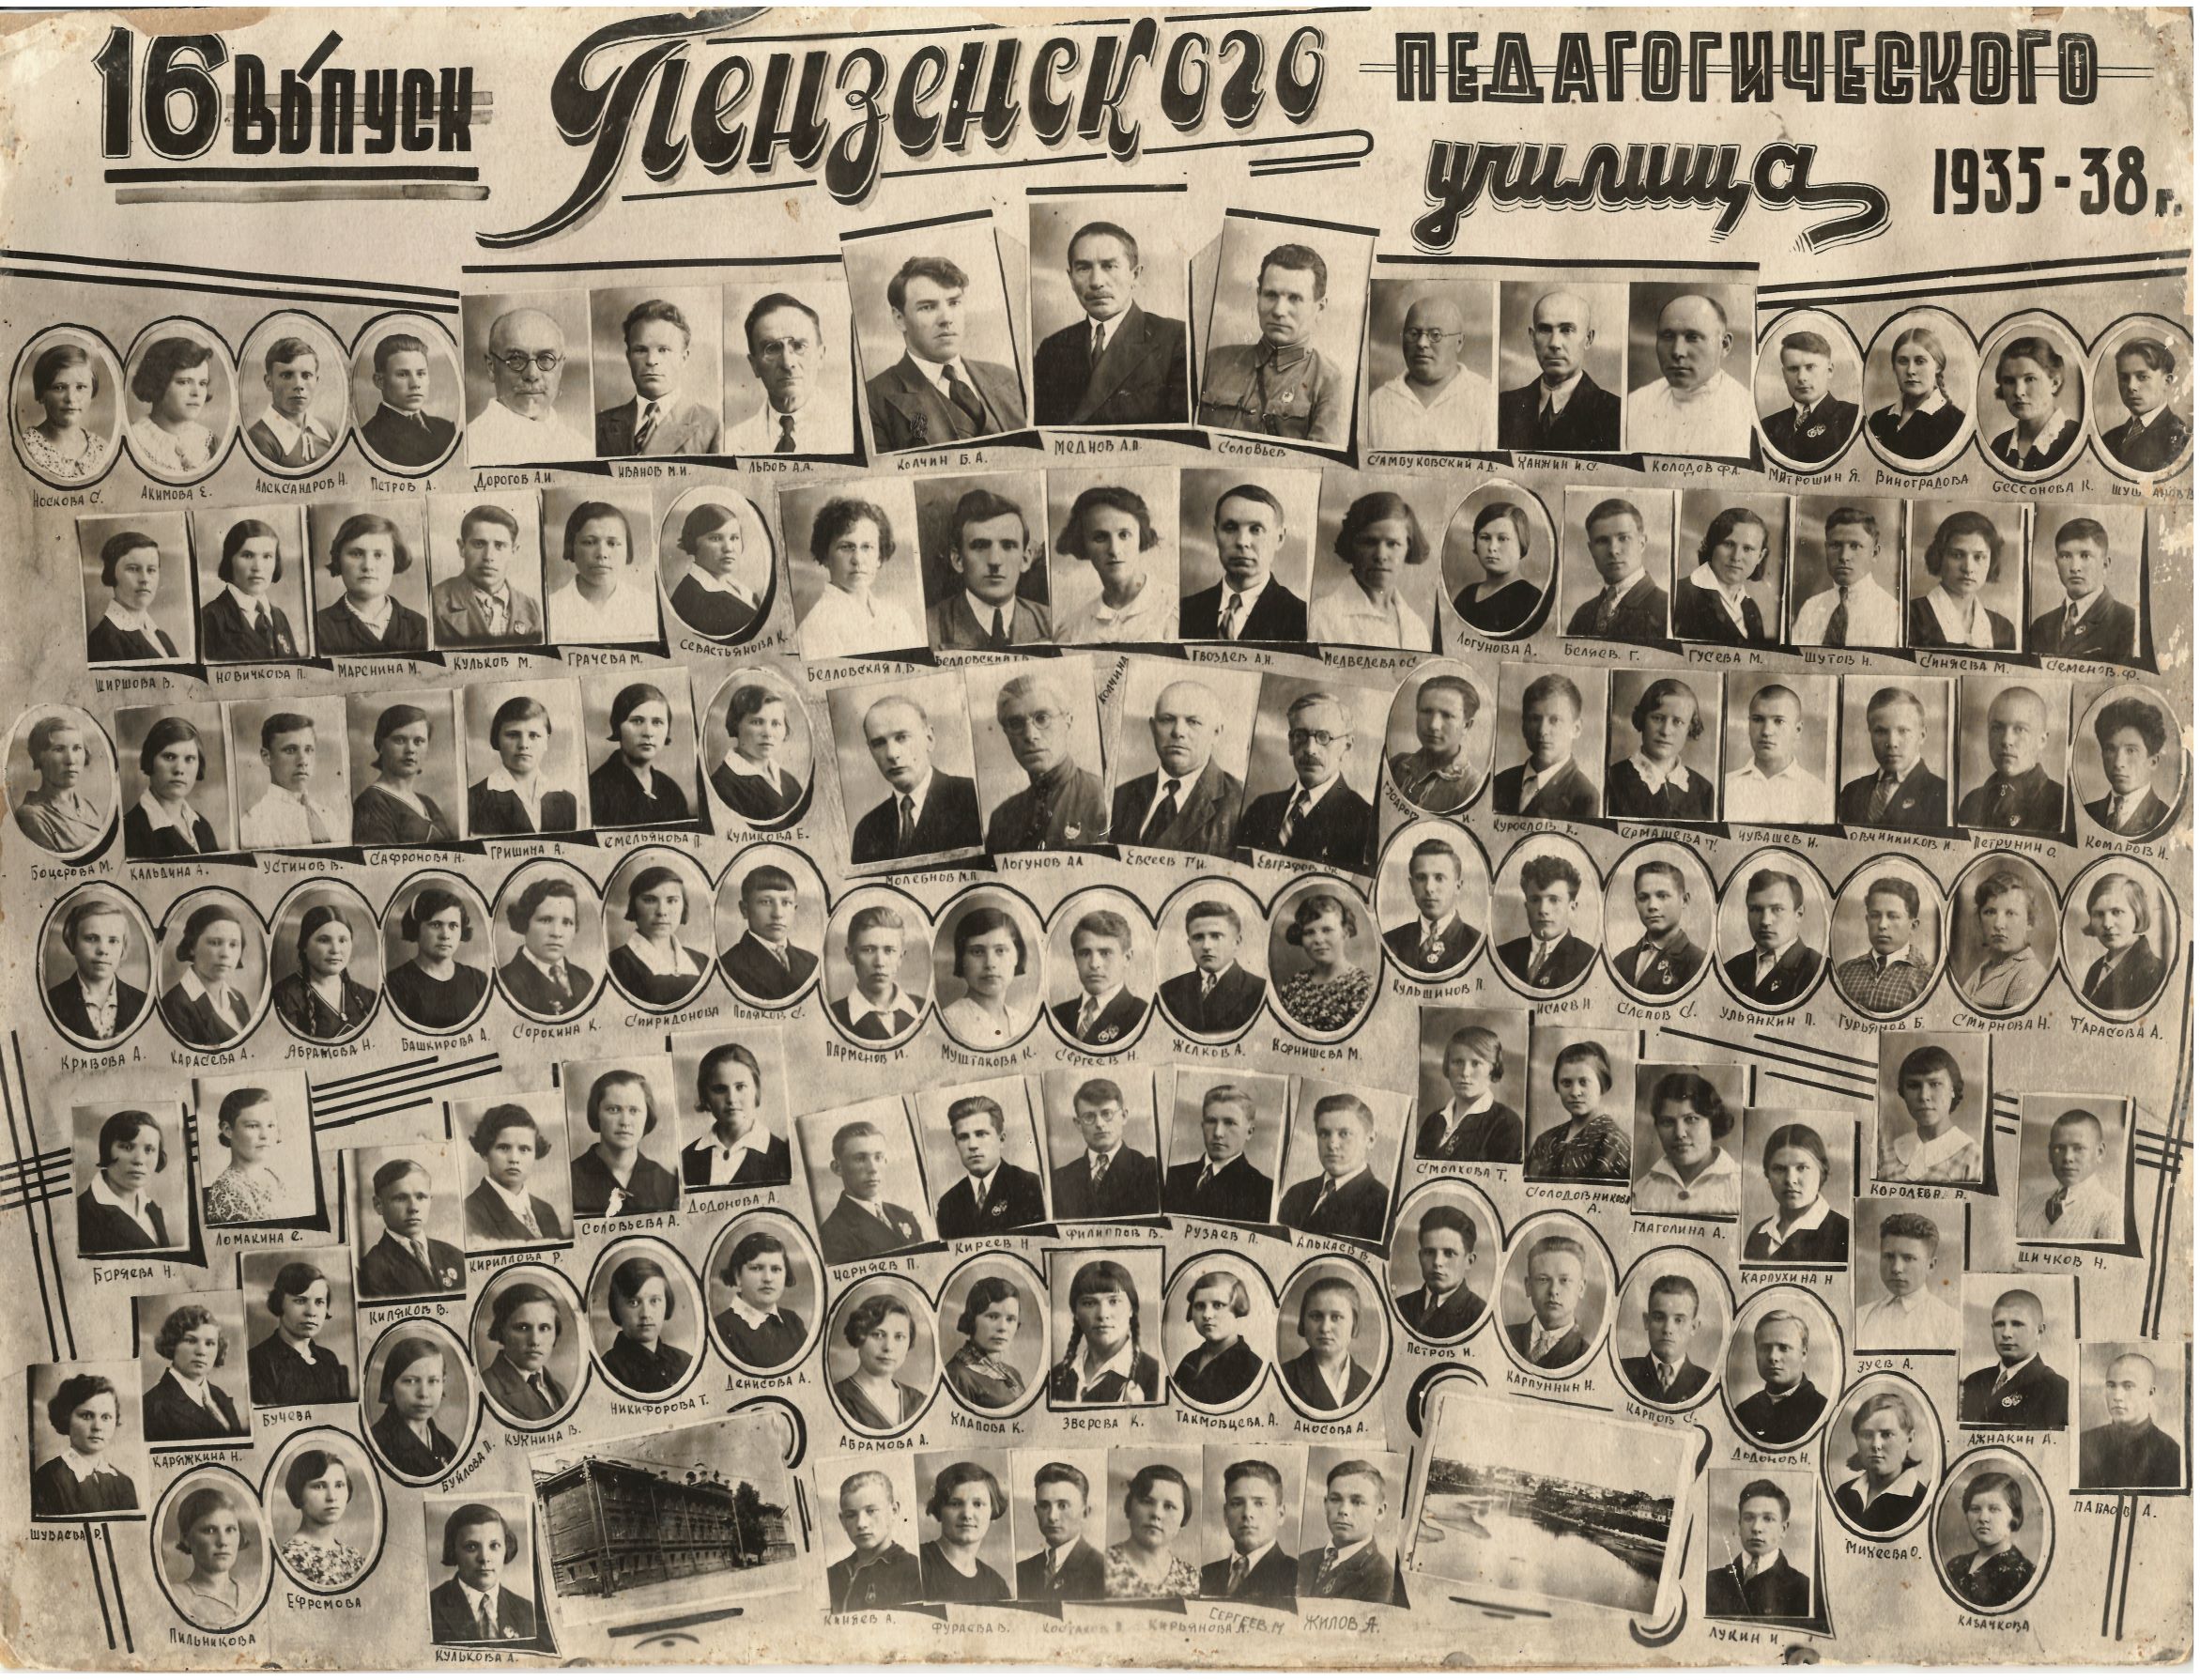 16 выпуск Пензенского ПЕДАГОГИЧЕСКОГО
училища 1935-38г.
Носкова С. Акимова Е. Александров Н. Петров А. Дорогов А.И. Иванов М.И. Львов А.А. Колчин Б.А. Меднов А.П. Соловьев Самбуковский А.Д. Ханжин И.С. Колодов Ф.А. Митрошин Я. Виноградова Бессонова К.
Ширшова В. Новичкова П. Марснина М. Кульков М. Грачева М. Севастьянова К. Белловская Л.В. Белловский Колчина Гвоздев А.И. Медведева О.С. Логунова А. Беляев Г. Гусева М. Шутов Н. Синяева М. Семенов Ф.
Боцерова М. Кальдина А. Устинов В. Сафронова Н. Гришина А. Емельянова П. Куликова Е. Молебнов М.П. Логунов А.А. Евсеев Г.И. Евграфов И. Курослов К. Ермашева Т. Чувашев И. Овчинников И. Петрунин О. Комаров Н.
Кривова А. Карасева А. Абрамова Н. Башкирова А. Сорокина К. Спиридонова Поляков С. Парменов И. Муштакова К. Сергеев Н. Желков А. Корнишева М. Кульшинов П. Исаев Н. Слепов С. Ульянкин П. Гурьянов Б. Смирнова Н. Тарасова А.
Боряева Н. Ломакина Е. Киляков В. Кириллова Р. Соловьева А. Додонова А. Черняев П. Киреев Н. Филиппов В. Рузаев П. Алькаев В. Смолкова Т. Солодовникова А. Глаголина А. Карпухина Н Королева А. Шичков Н.
Шуваева Р. Каряжкина Н. Бучева Буйлова П. Кухнина В. Никифорова Т. Денисова А. Абрамова А. Хлапова К. Зверева К. Такмовцева А. Аносова А. Петров И. Карпунин Н. Карпов С. Додонов Н. Зуев А. Ажнакин А. Папаов А.
Пильникова Ефремова Кулькова А. Киняев А. Фураева В. Кирьянова А. Сергеев М Жилов А. Лукин И. Михеева О. Казачкова